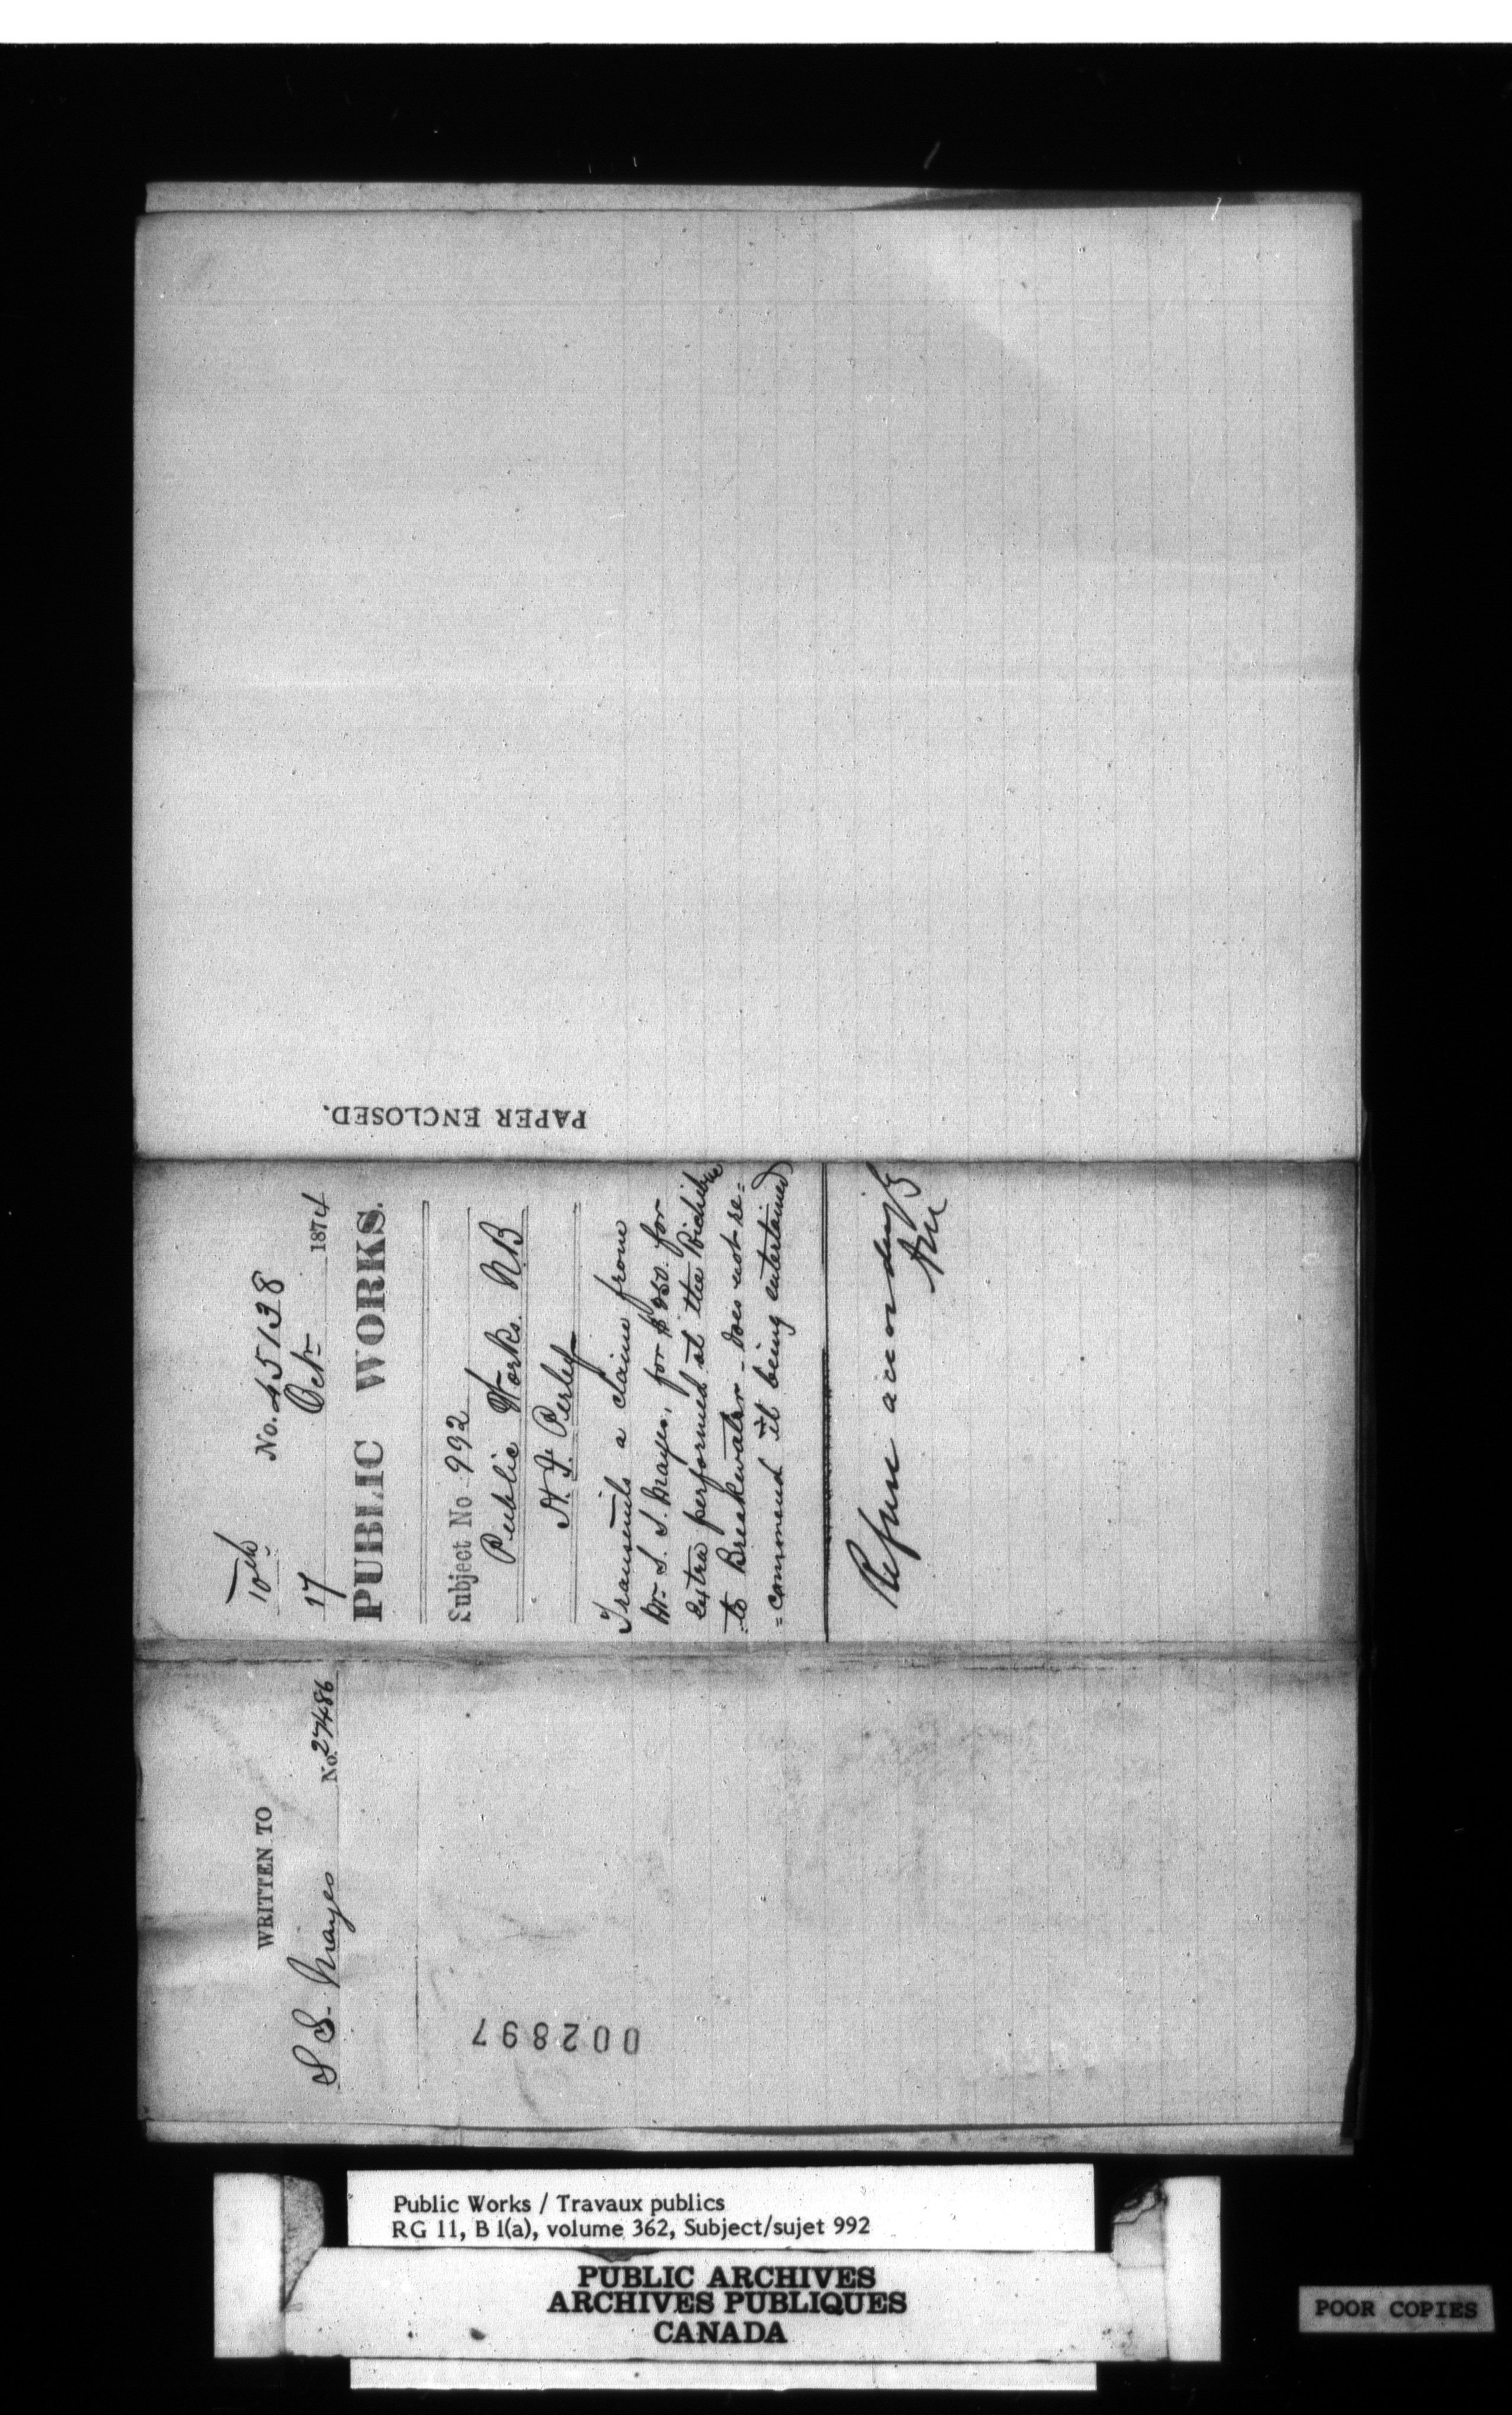 PAPER ENCLOSED.
10th
No. 45138
17 Octr 1874
PUBLIC WORKS.
Subject No 992
Public Works. N.B
H. F. Perley
Transmits a claim from
Mr S. S. Mayes, for $250. for
extra performed at the Richibucto
to Breakwater - Does not re=
=commend it being entertained
Refuse accordingly
WRITTEN TO
S S. Mayes No. 27486
002897
Public Works / Travaux publics
RG 11, B 1(a), volume 362, Subject/sujet 992
PUBLIC ARCHIVES
ARCHIVES PUBLIQUES
CANADA
POOR COPIES